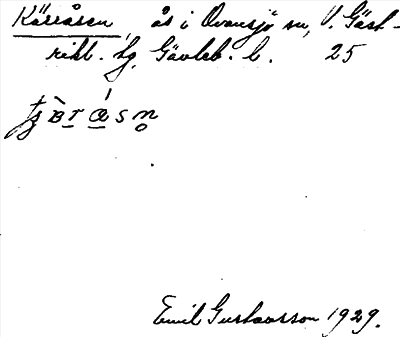 Kärråsen, ås i Ovansjö sn, V. Gäst-
rikl. tg. Gävleb. l. 25
Emil Gustavsson 1929.